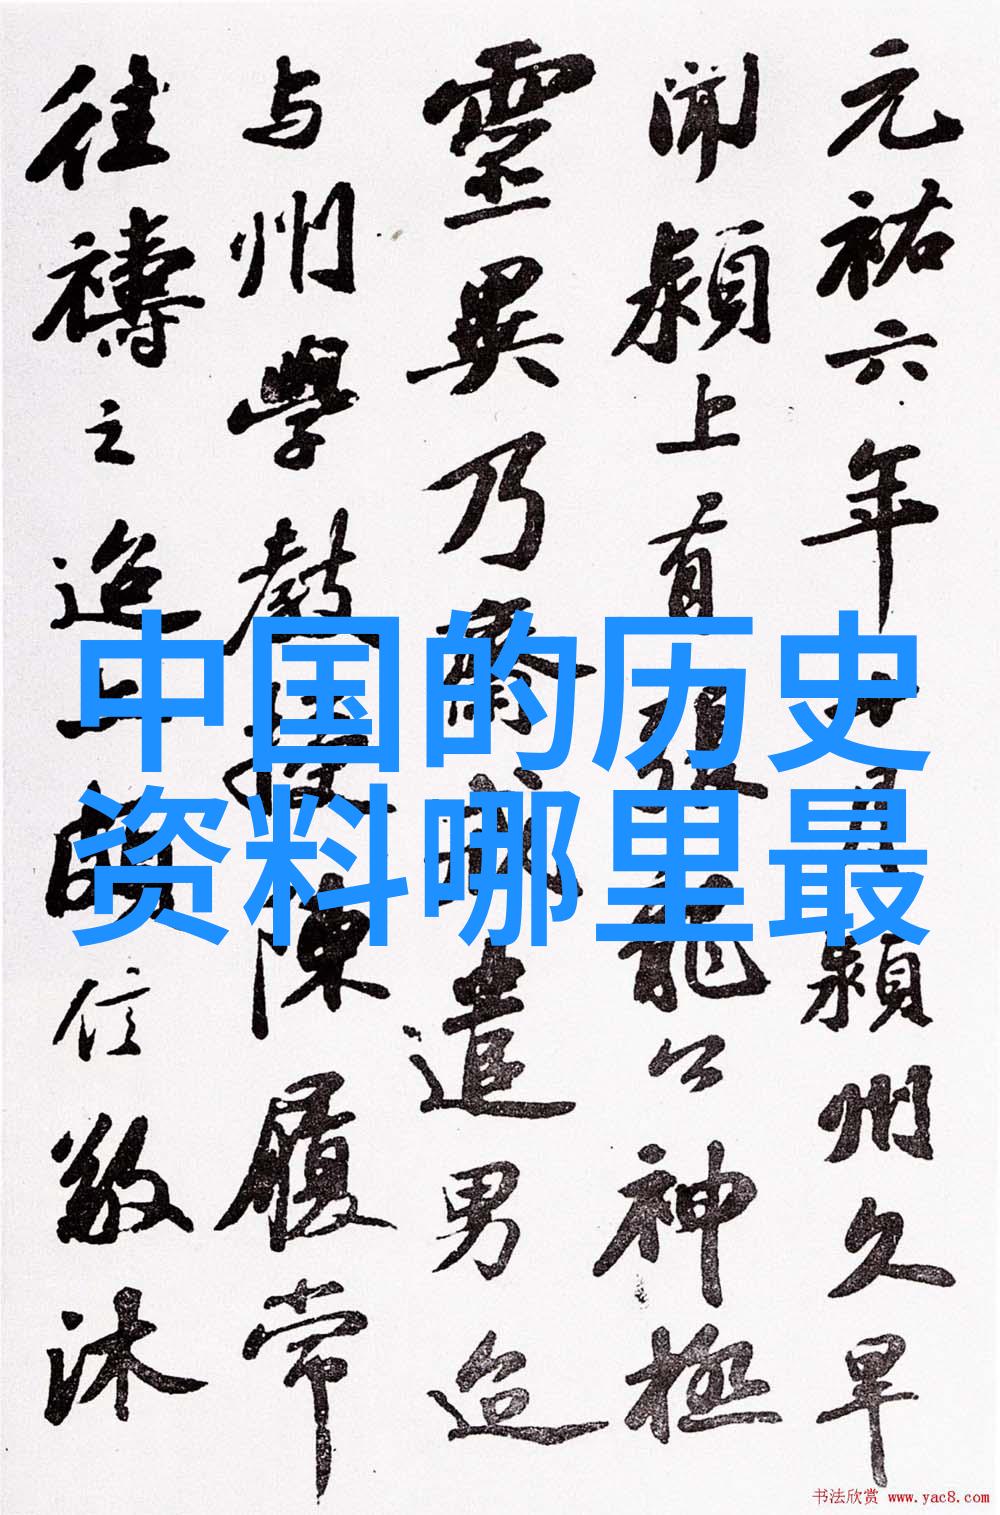 元祐六年十月潁州久旱
聞潁上有張龍公神極
靈異乃齋戒遣男迨
与州學教授陳履常
往禱之迨亦頗信敬沐
中国的历史
资料哪里最
书法欣赏 www.yac8.com